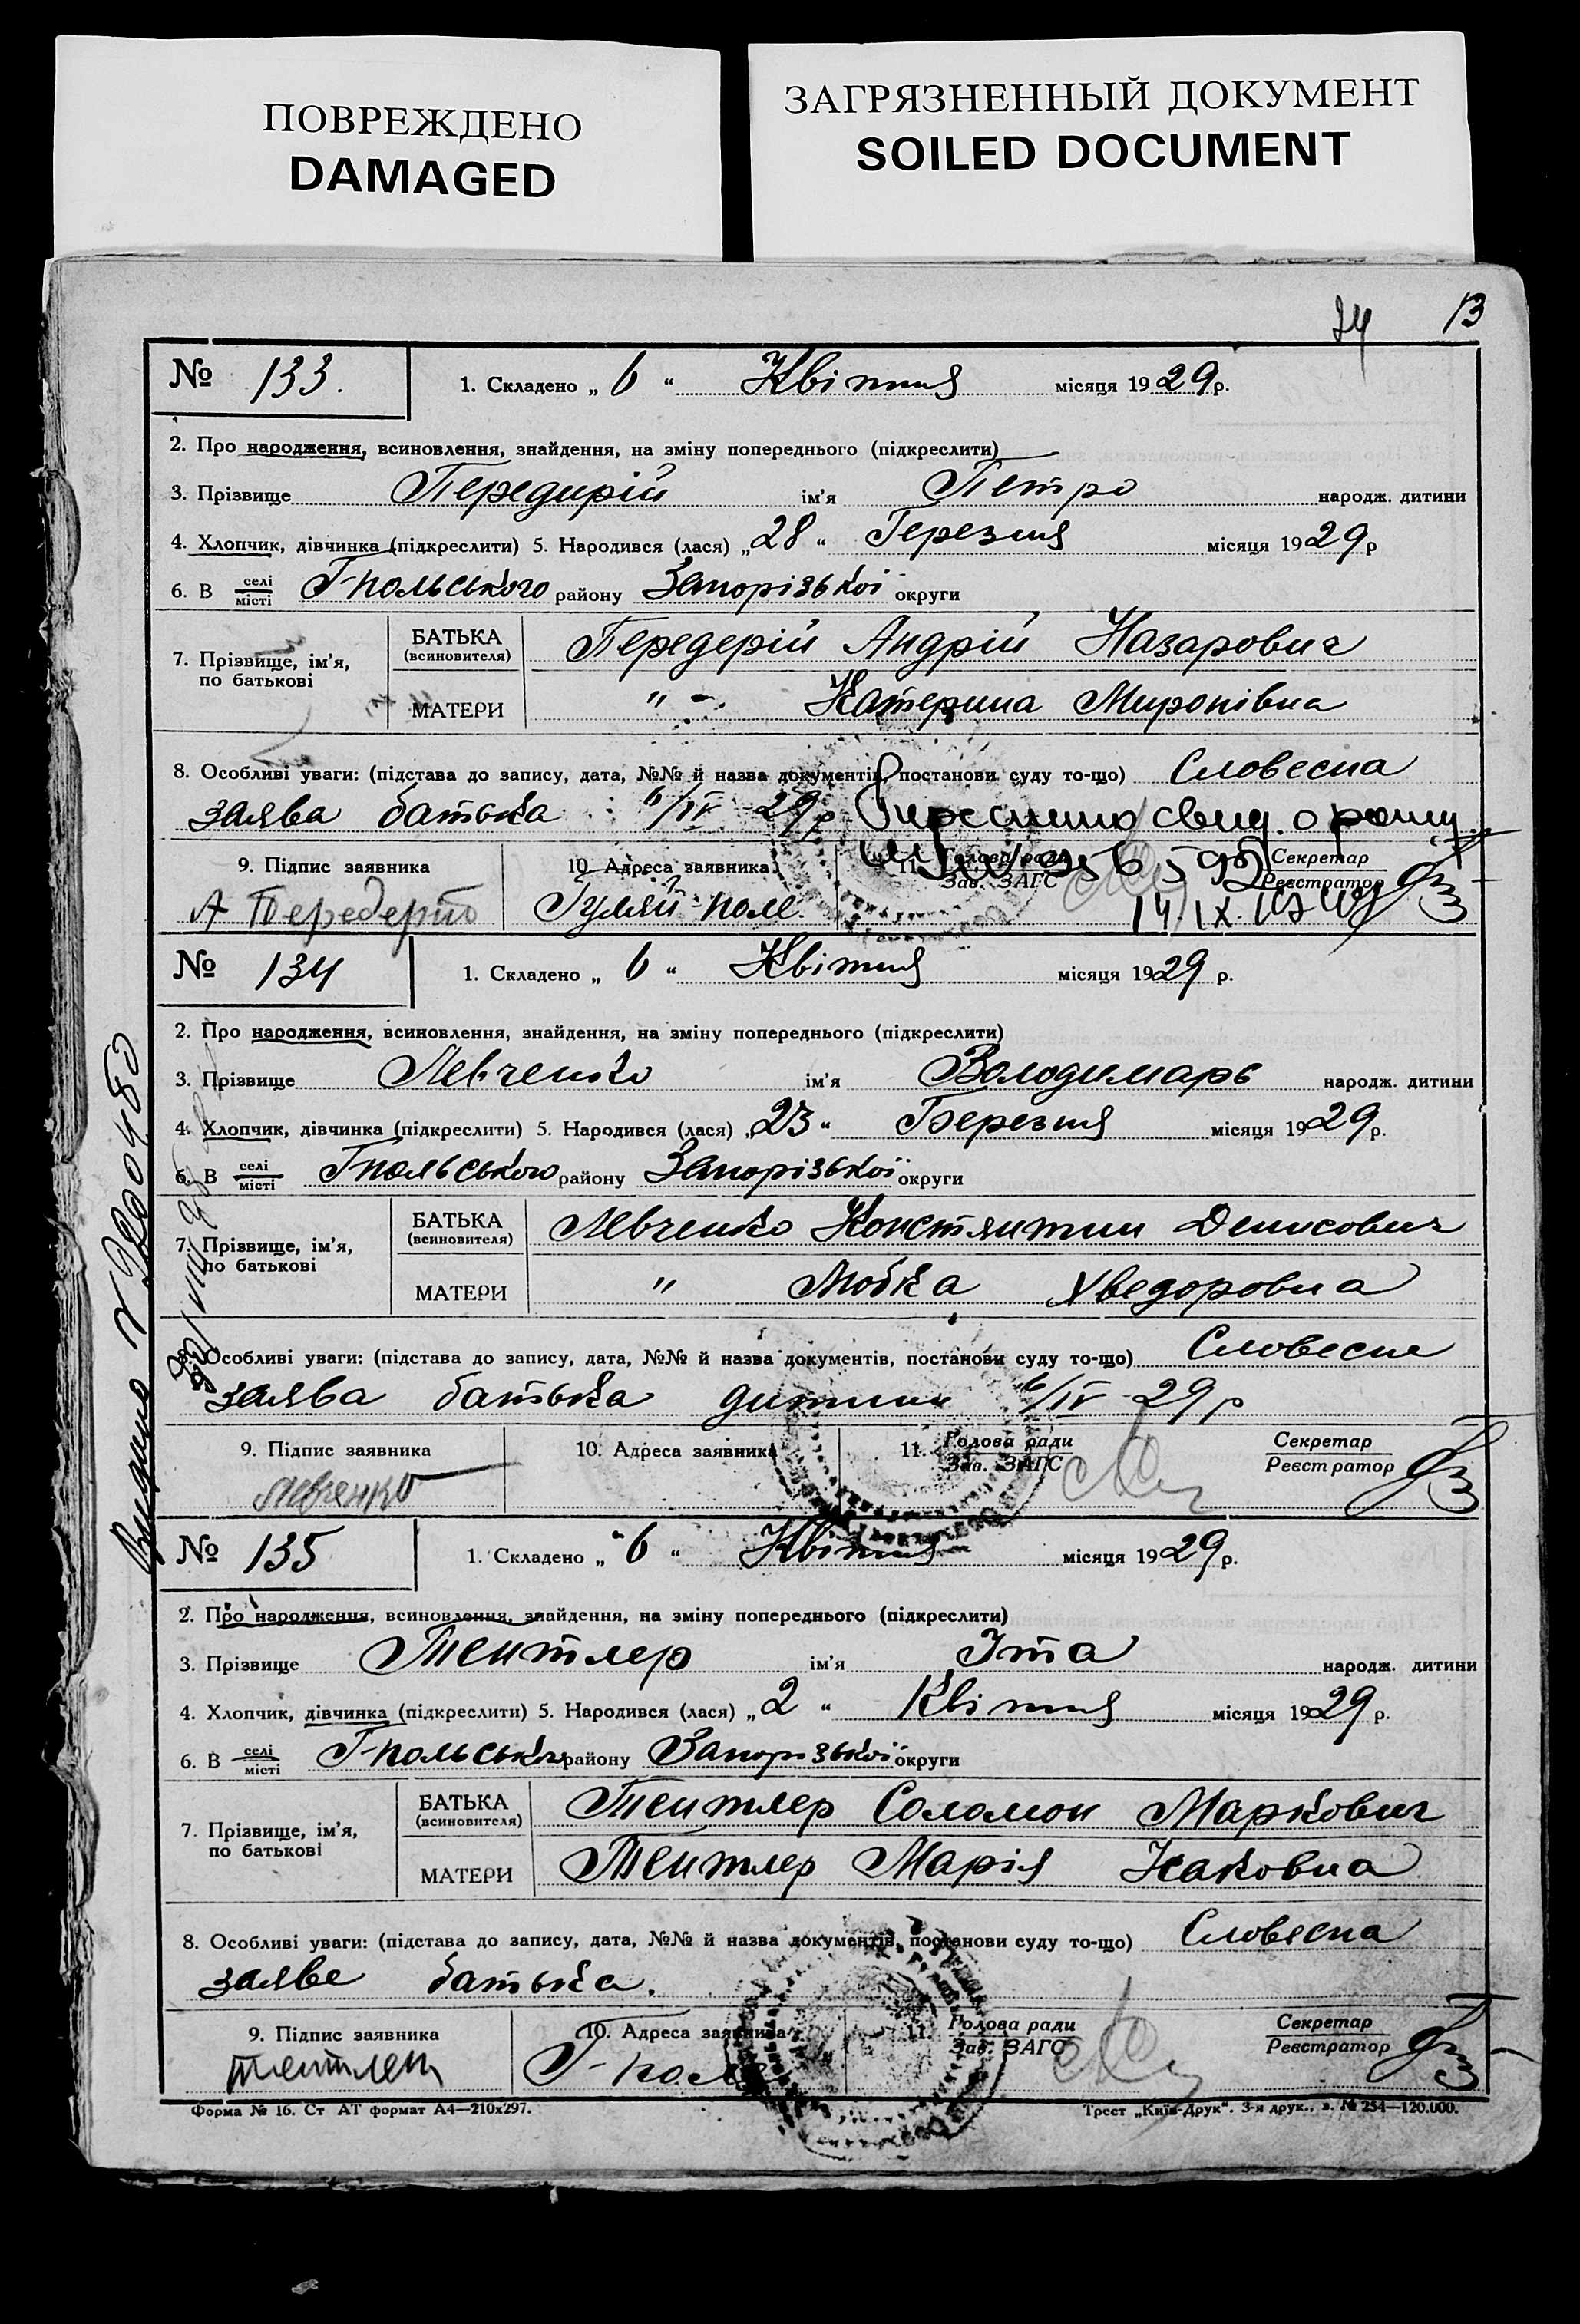 ПОВРЕЖДЕНО
DAMAGED
ЗАГРЯЗНЕННЫЙ ДОКУМЕНТ
SOILED DOCUMENT
24 13
№ 133. 1. Складено „ 6 “ Квітня місяця 1929 р.
2. Про народження, всиновлення, знайдення, на зміну попереднього (підкреслити)
3. Прізвище Передирій ім'я Петро народж. дитини
4. Хлопчик, дівчинка (підкреслити) 5. Народився (лася) „28 “ Березня місяця 1929 р
6. В селі/місті Г-польського району Запорізької округи
7. Прізвище, ім'я, по батькові БАТЬКА (всиновителя) Передерій Андрій Назарович
МАТЕРИ " - Катерина Миронівна
8. Особливі уваги: (підстава до запису, дата, №№ й назва документів, постанови суду то-що) Словесна
заява батька 6/IV 29 р
9. Підпис заявника 10. Адреса заявника 11. Голова ради/Зав. ЗАГС Секретар/Реєстратор
А Передерій Гуляй-поле. 14.IX.
№ 134 1. Складено „ 6 “ Квітня місяця 1929 р.
2. Про народження, всиновлення, знайдення, на зміну попереднього (підкреслити)
3. Прізвище Левченко ім'я Володимарь народж. дитини
4. Хлопчик, дівчинка (підкреслити) 5. Народився (лася) „23 “ Березня місяця 1929 р.
6. В селі/місті Г-польського району Запорізької округи
7. Прізвище, ім'я, по батькові БАТЬКА (всиновителя) Левченко Констянтин Денисович
МАТЕРИ " Любка Хведоровна
8. Особливі уваги: (підстава до запису, дата, №№ й назва документів, постанови суду то-що) Словесне
заява батька дитини 6/IV 29 р
9. Підпис заявника 10. Адреса заявника 11. Голова ради/Зав. ЗАГС Секретар/Реєстратор
Левченко
№ 135 1. Складено „ 6 “ Квітня місяця 1929 р.
2. Про народження, всиновлення, знайдення, на зміну попереднього (підкреслити)
3. Прізвище Тентлер ім'я Іта народж. дитини
4. Хлопчик, дівчинка (підкреслити) 5. Народився (лася) „ 2 “ Квітня місяця 1929 р.
6. В селі/місті Г-польського району Запорізької округи
7. Прізвище, ім'я, по батькові БАТЬКА (всиновителя) Тентлер Соломон Маркович
МАТЕРИ Тентлер Марія
8. Особливі уваги: (підстава до запису, дата, №№ й назва документів, постанови суду то-що) Словесна
заяве батька.
9. Підпис заявника 10. Адреса заявника 11. Голова ради/Зав. ЗАГС Секретар/Реєстратор
Тентлер Г-поле
Форма № 16. Ст АТ формат А4—210х297. Трест „Київ-Друк“. 3-я друк., з. № 254—120.000.